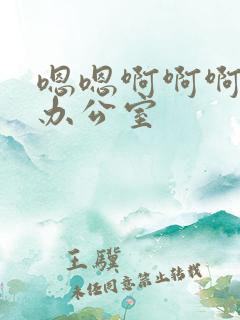 嗯嗯啊啊啊
办公室
王骥
未经同意禁止转载